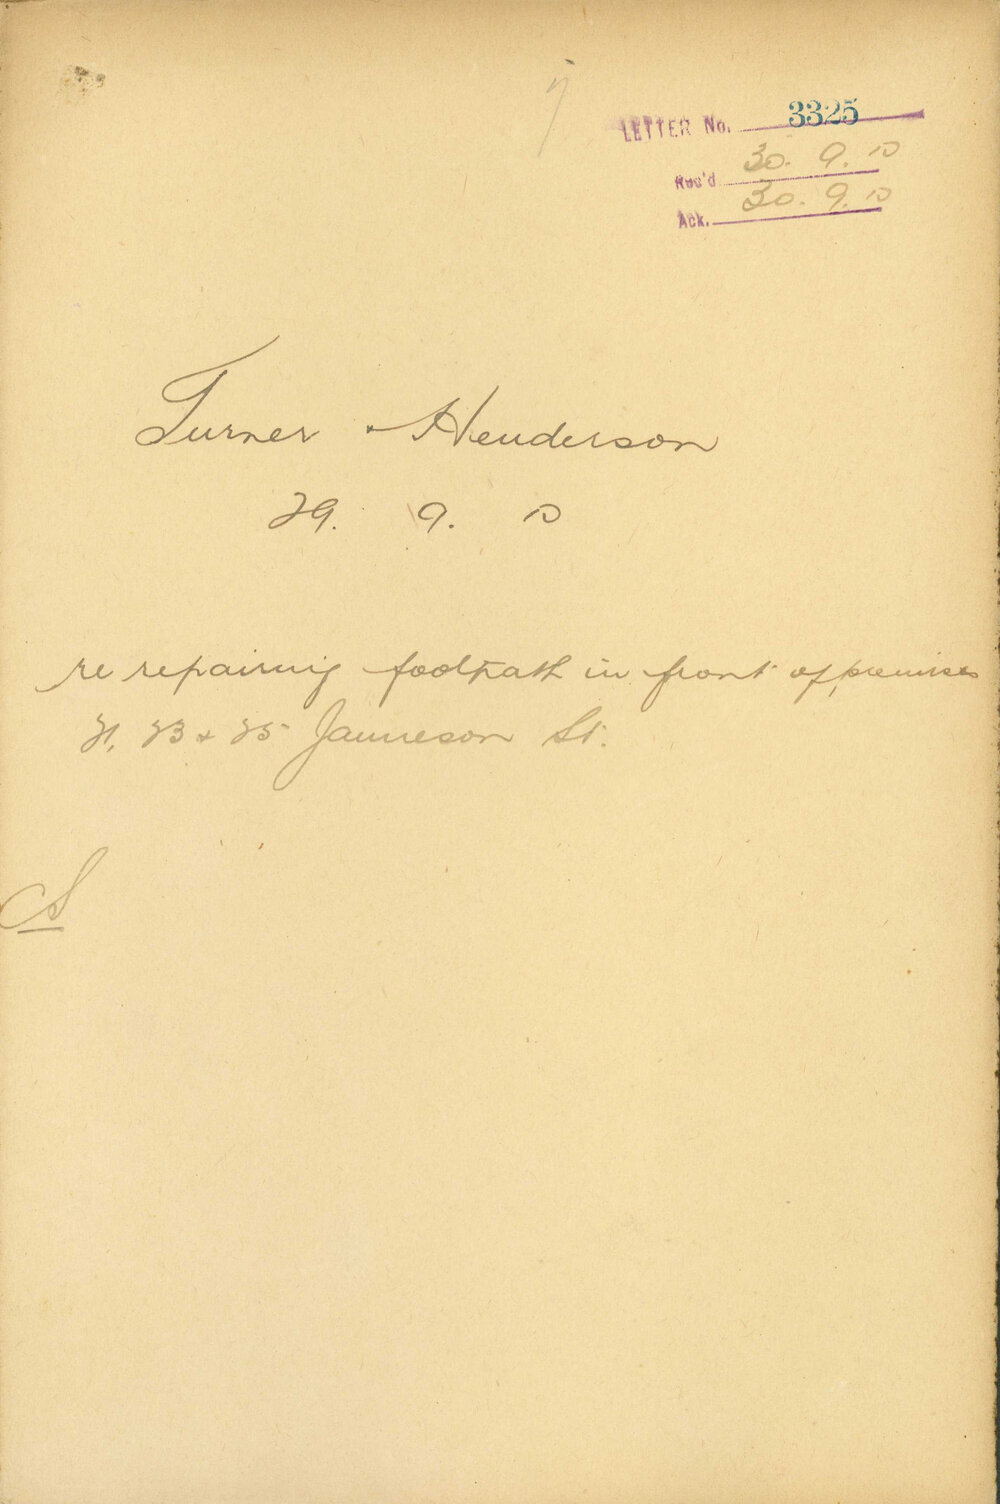 LETTER No. 3325
Rec'd 30. 9. 10
Ack. 30. 9. 10
Turner & Henderson
29. 9. 10
re repairing footpath in front of premises
21, 23 & 25 Jamieson St.